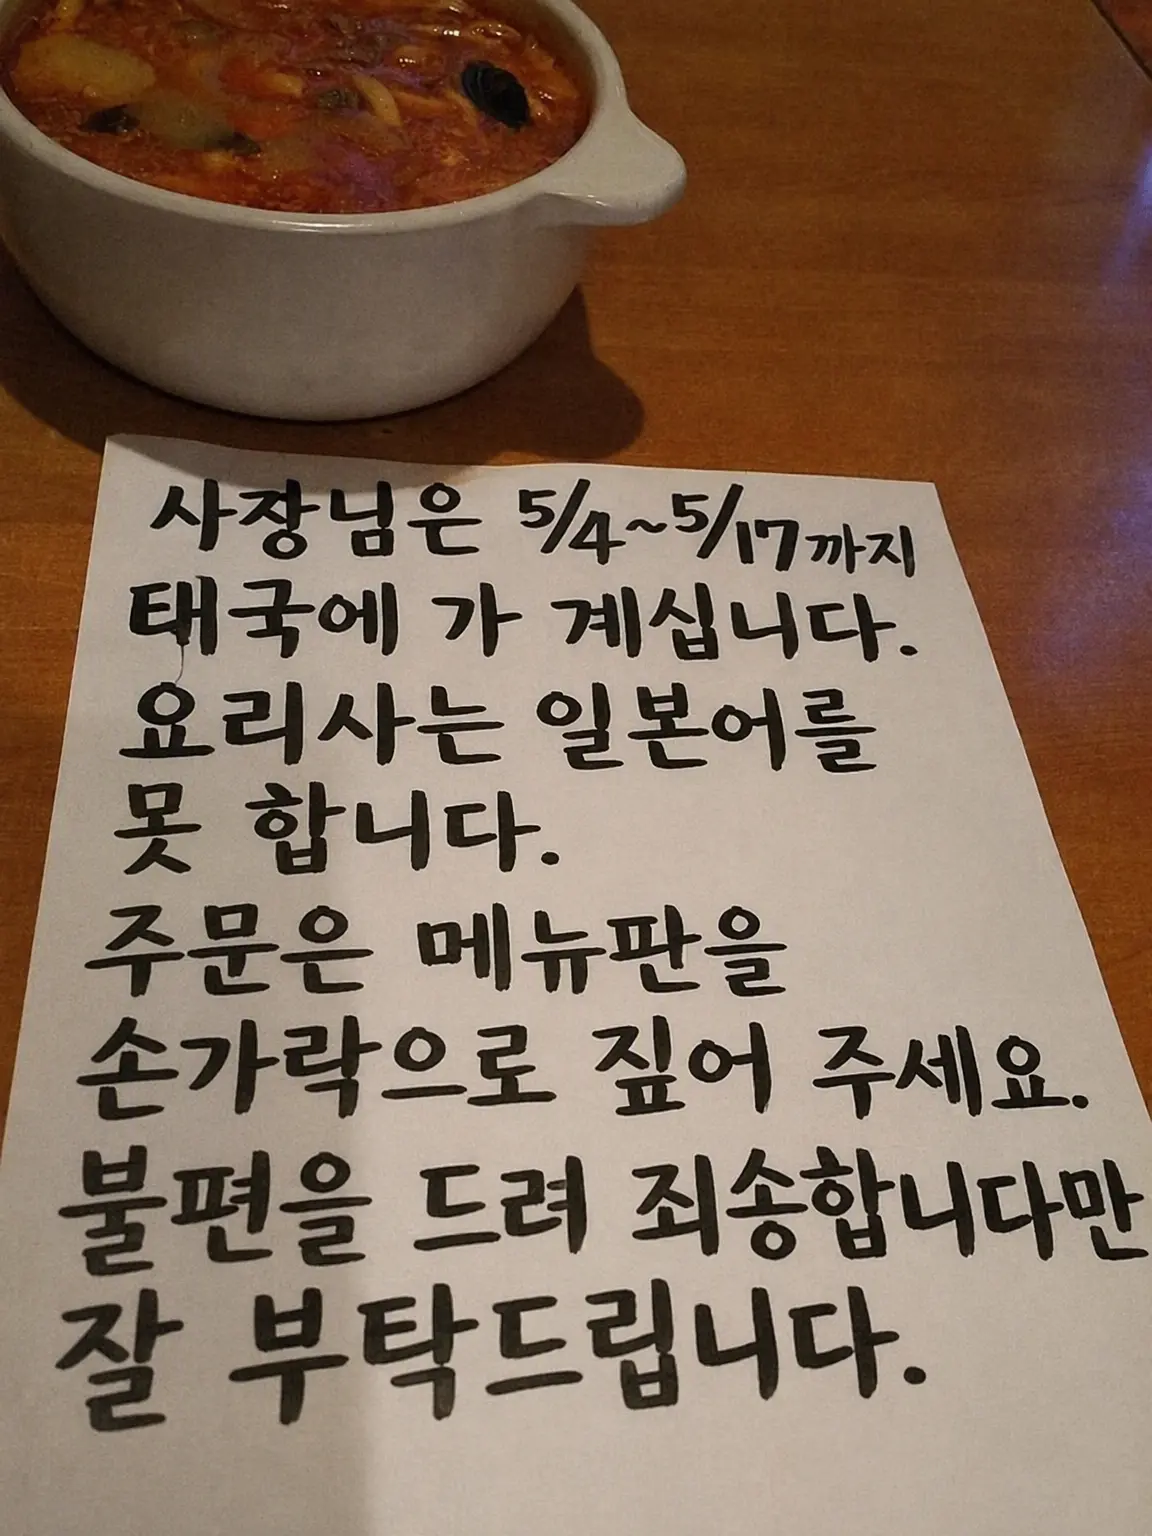 사장님은 5/4~5/17까지
태국에 가 계십니다.
요리사는 일본어를
못 합니다.
주문은 메뉴판을
손가락으로 짚어 주세요.
불편을 드려 죄송합니다만
잘 부탁드립니다.